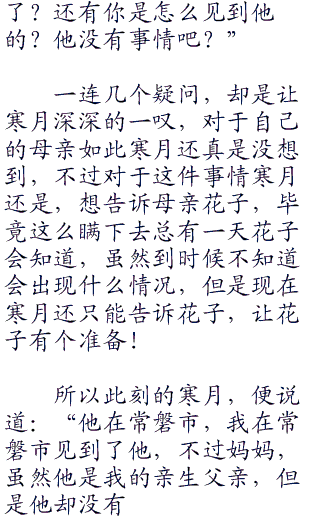 了？还有你是怎么见到他
的？他没有事情吧？”
一连几个疑问，却是让
寒月深深的一叹，对于自己
的母亲如此寒月还真是没想
到，不过对于这件事情寒月
还是，想告诉母亲花子，毕
竟这么瞒下去总有一天花子
会知道，虽然到时候不知道
会出现什么情况，但是现在
寒月还只能告诉花子，让花
子有个准备！
所以此刻的寒月，便说
道：“他在常磐市，我在常
磐市见到了他，不过妈妈，
虽然他是我的亲生父亲，但
是他却没有